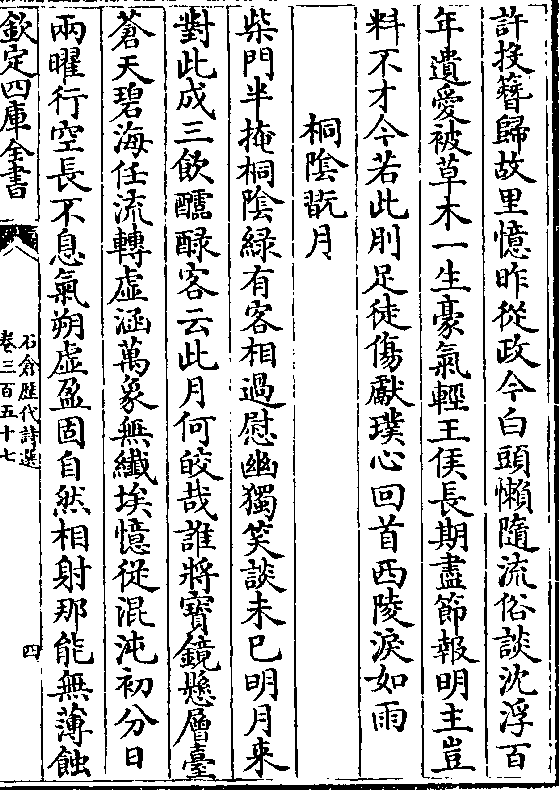 許投簪歸故里憶昨從政今白頭懶隨流俗談沈浮百
年遺愛被草木一生豪氣輕王侯長期盡節報明主豈
料不才今若此刖足徒傷獻璞心回首西陵淚如雨
桐陰翫月
柴門半掩桐陰緑有客相過慰幽獨笑談未已明月来
對此成三飲醽醁客云此月何皎哉誰將寳鏡懸層臺
蒼天碧海任流轉虚涵萬象無纎埃憶從混沌初分日
兩曜行空長不息氣朔虚盈固自然相射那能無薄蝕
欽定四庫全書
石倉歴代詩選
卷三百五十七
四